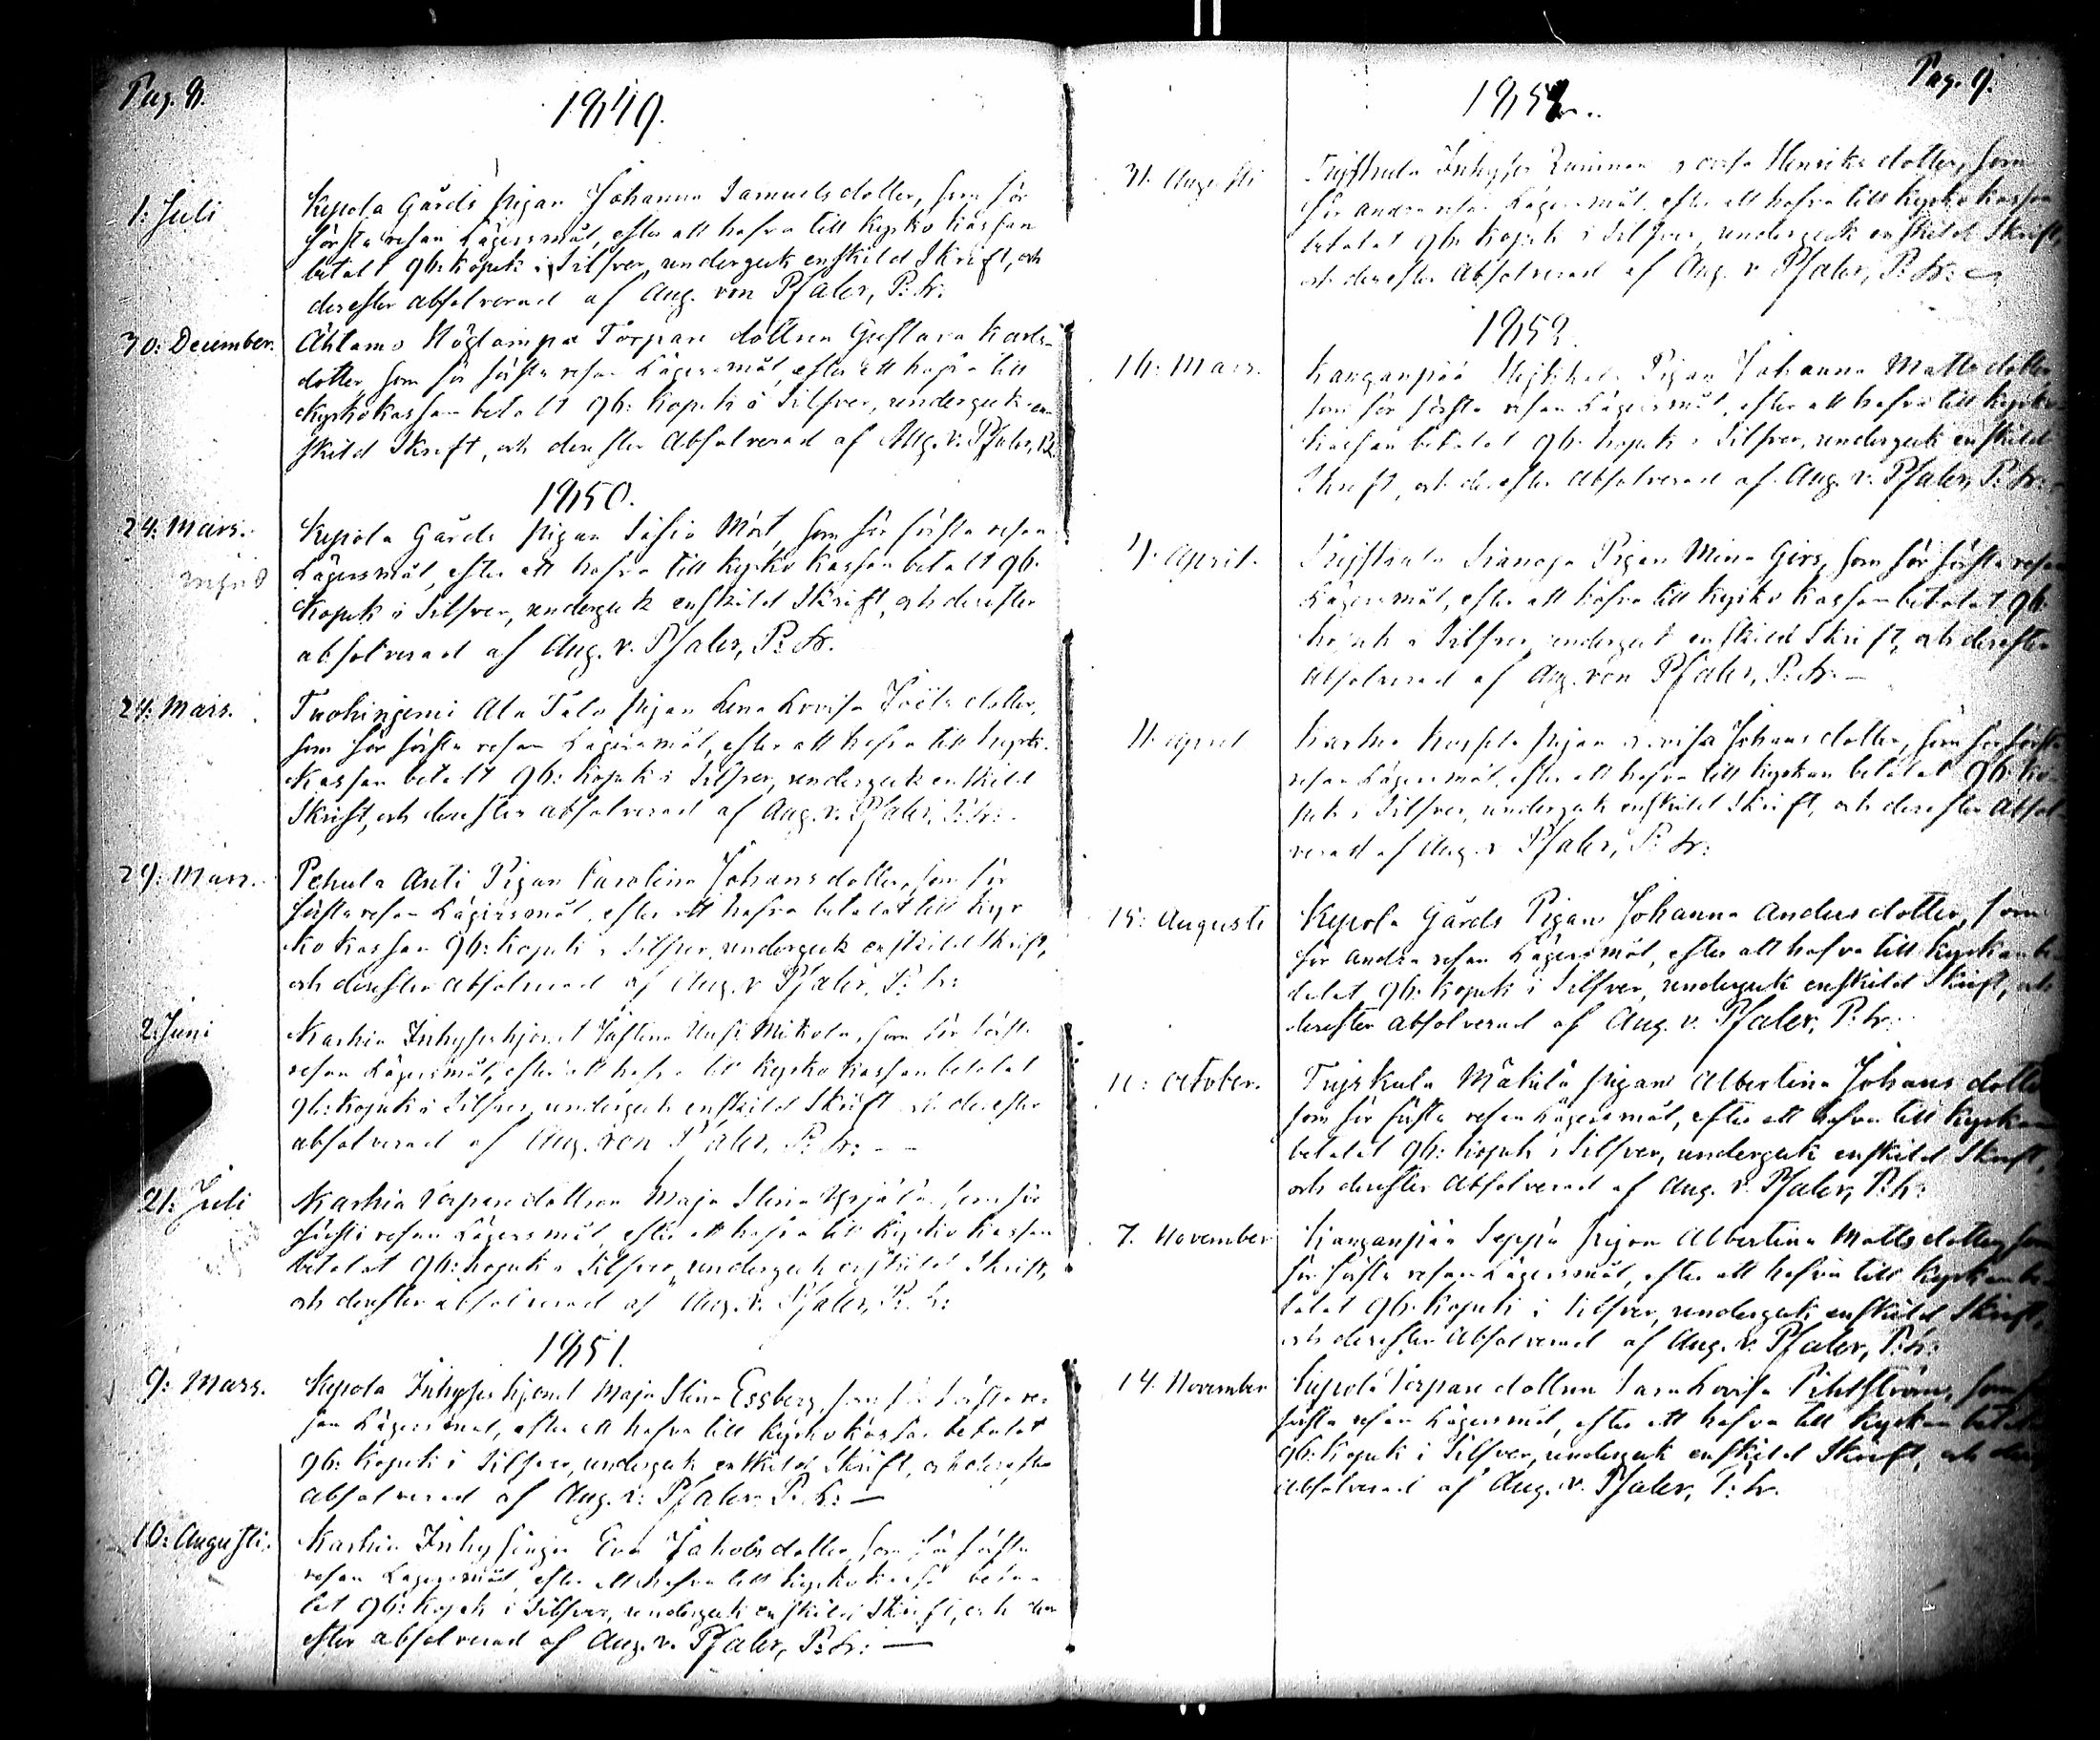 Pag. 8.
1849.
1: Juli
Kepola Gårds pigan Johanna Samuelsdotter, som för
första resan Lägersmål, efter att hafva till Kyrko kassan
betalt 96: kopek i Silfver, undergick enskild Skrift, och
derefter absolverad af Aug. von Pfaler, P: Kr:
30: December.
Ahlamo Torpare dottren Gustava Karls-
dotter, som för första resan Lägersmål, efter att hafva till
Kyrkokassan betalt 96: kopek i Silfver, undergick en-
skild Skrift, och derefter absolverad af Aug. v. Pfaler,
1850.
24: Mars.
Kepola Gårds pigan Sofia Mört, som för första resan
Lägersmål, efter att hafva till Kyrko kassan betalt 96.
Kopek i Silfver, undergick enskild Skrift, och derefter
absolverad af Aug. v. Pfaler, P: Kr.
24: Mars.
Ala Talo pigan Lena Lovisa Joëlsdotter,
som för första resan Lägersmål, efter att hafva till Kyrko-
Kassan betalt 96: Kopek i Silfver, undergick enskild
Skrift, och derefter absolverad af Aug. v. Pfaler, P: Kr:
29: Mars.
Pehula Anti Pigan Carolina Johansdotter, som för
första resan Lägersmål, efter att hafva betalat till Kyr
ko kassan 96: kopek i Silfver, undergick enskild Skrift,
och derefter absolverad af Aug. v Pfaler, P: Kr:
2: Juni
Karhia Inhyseshjonet Justina Mikola, som för första
resan Lägersmål, efter att hafva till Kyrko kassan betalat
96: kopek i Silfver, undergick enskild Skrift och derefter
absolverad af Aug. von Pfaler, P: Kr: —
21: Juli
Karhia Torparedottren Maja Stina Yrjälä som för
första resan Lägersmål, efter att hafva till Kyrko kassan
betalat 96: kopek i Silfver, undergick enskild Skrift,
och derefter absolverad af Aug. v. Pfaler, P: Kr:
1851.
9: Mars.
Kepola Inhyses hjonet Maja Stina Essberg, som för första re-
san Lägersmål, efter att hafva till Kyrko kassan betalat
96: Kopek i Silfver, undergick enskild Skrift, och derefter
absolverad af Aug. v: Pfaler. P: Kr: —
10: Augusti.
Karhia Eva Jakobsdotter, som för första
resan Lägersmål, efter att hafva till Kyrko kassan beta-
lat 96: kopek i Silfver, undergick enskild Skrift, och der
efter absolverad af Aug. v. Pfaler, P: Kr: —
Pag. 9.
31. Augusti
Inhyses Lovisa Henriksdotter, som
för andra resan Lägersmål, efter att hafva till Kyrko kassan
betalat 96: Kopek i Silfver, undergick enskild Skrift,
och derefter absolverad af Aug. v. Pfaler, P: Kr: —
1852.
14: Mars.
Kanganpää Pigan Johanna Mattsdotter
som för första resan Lägersmål, efter att hafva till Kyrko-
Kassan betalat 96: kopek i Silfver, undergick enskild
Skrift, och derefter absolverad af Aug. v. Pfaler, P: Kr:
4. April.
Pigan Mina Girs, som för första resan
Lägersmål, efter att hafva till Kyrko kassan betalat 96:
kopek i Silfver, undergick enskild Skrift, och derefter
absolverad af Aug. von Pfaler, P: Kr: —
11. April
pigan Lovisa Johansdotter, som för första
resan Lägersmål, efter att hafva till Kyrkan betalat 96: Ko-
pek i Silfver, undergick enskild Skrift, och derefter absol-
verad af Aug. v Pfaler, P: Kr:
15: Augusti
Kepola Gårds Pigan Johanna Andersdotter, som
för andra resan Lägersmål, efter att hafva till Kyrkan be-
talat 96: Kopek i Silfver, undergick enskild Skrift, och
derefter absolverad af Aug. v. Pfaler, P: Kr:
October.
Tujskula Mäkilä pigan Albertina Johans dotter
som för första resan Lägersmål, efter att hafva till Kyrkan
betalat 96: kopek i Silfver, undergick enskild Skrift,
och derefter absolverad af Aug. v. Pfaler, P: Kr:
7. November
Kanganpää Seppä pigan Albertina Mattsdotter, som
för första resan Lägersmål, efter att hafva till Kyrkan be-
talat 96: Kopek i Silfver, undergick enskild Skrift,
och derefter absolverad af Aug. v. Pfaler, P: Kr:
14. November
Kepola Torpare dottren Sara Lovisa som
första resan Lägersmål, efter att hafva till Kyrkan
96: Kopek i Silfver, undergick enskild Skrift, och
absolverad af Aug. v. Pfaler, P: Kr.